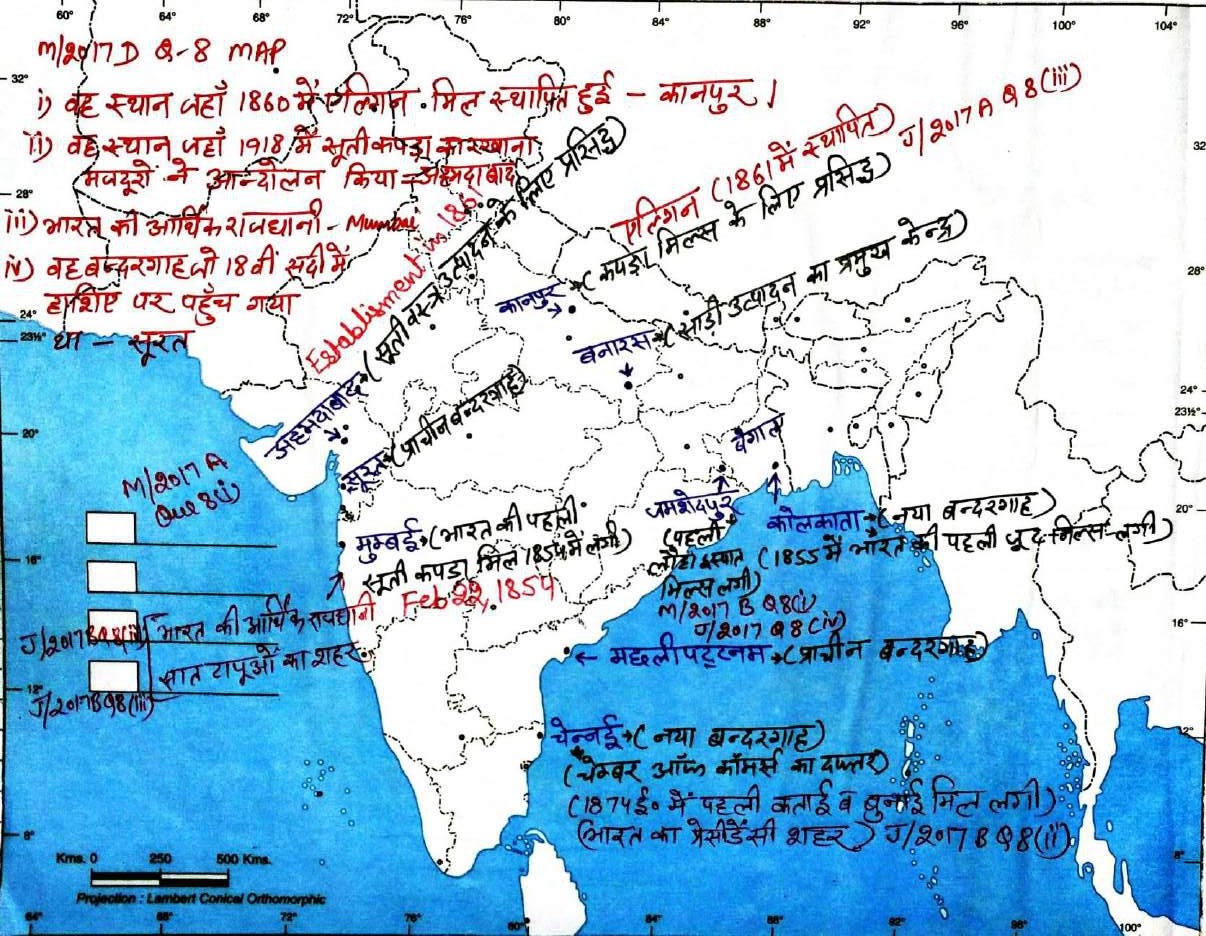 60° 64° 68° 72° 76° 80° 84° 88° 92° 96° 100° 104°
M/2017 D Q-8 MAP
i) वह स्थान जहाँ 1860 में एलिगन मिल स्थापित हुई - कानपुर ।
ii) वह स्थान जहाँ 1918 में सूती कपड़ा कारखाना
मजदूरों ने आन्दोलन किया = अहमदाबाद
iii) भारत की आर्थिक राजधानी - Mumbai
iv) वह बन्दरगाह जो 18वीं सदी में
हाशिए पर पहुँच गया
था - सूरत
32°
28°
24°
23½°
20°
16°
12°
8°
32°
28°
24°
23½°
20°
16°
12°
8°
Establisment in 1861
एलिगन (1861 में स्थापित) J/2017 A Q8(iii)
कानपुर (कपड़ा मिल्स के लिए प्रसिद्ध)
बनारस (साड़ी उत्पादन का प्रमुख केन्द्र)
अहमदाबाद (सूती वस्त्र उत्पादन के लिए प्रसिद्ध)
सूरत (प्राचीन बन्दरगाह)
M/2017 A
Que 8(i)
मुम्बई (भारत की पहली
सूती कपड़ा मिल 1854 में लगी)
Feb 22, 1854
J/2017 B Q8(ii) भारत की आर्थिक राजधानी
सात टापूओं का शहर
J/2017 B Q8(iii)
बंगाल
जमशेदपुर
(पहली
लौहा इस्पात
मिल्स लगी)
M/2017 B Q8(i)
J/2017 Q8(iv)
कोलकाता (नया बन्दरगाह)
(1855 में भारत की पहली जूट मिल्स लगी)
← मछलीपट्टनम (प्राचीन बन्दरगाह)
चेन्नई (नया बन्दरगाह)
(चेम्बर ऑफ कॉमर्स का दफ्तर)
(1874 ई० में पहली कताई व बुनाई मिल लगी)
(भारत का प्रेसीडेंसी शहर) J/2017 B Q8(ii)
Kms. 0 250 500 Kms.
Projection : Lambert Conical Orthomorphic
64° 68° 72° 76° 80° 84° 88° 92° 96° 100°